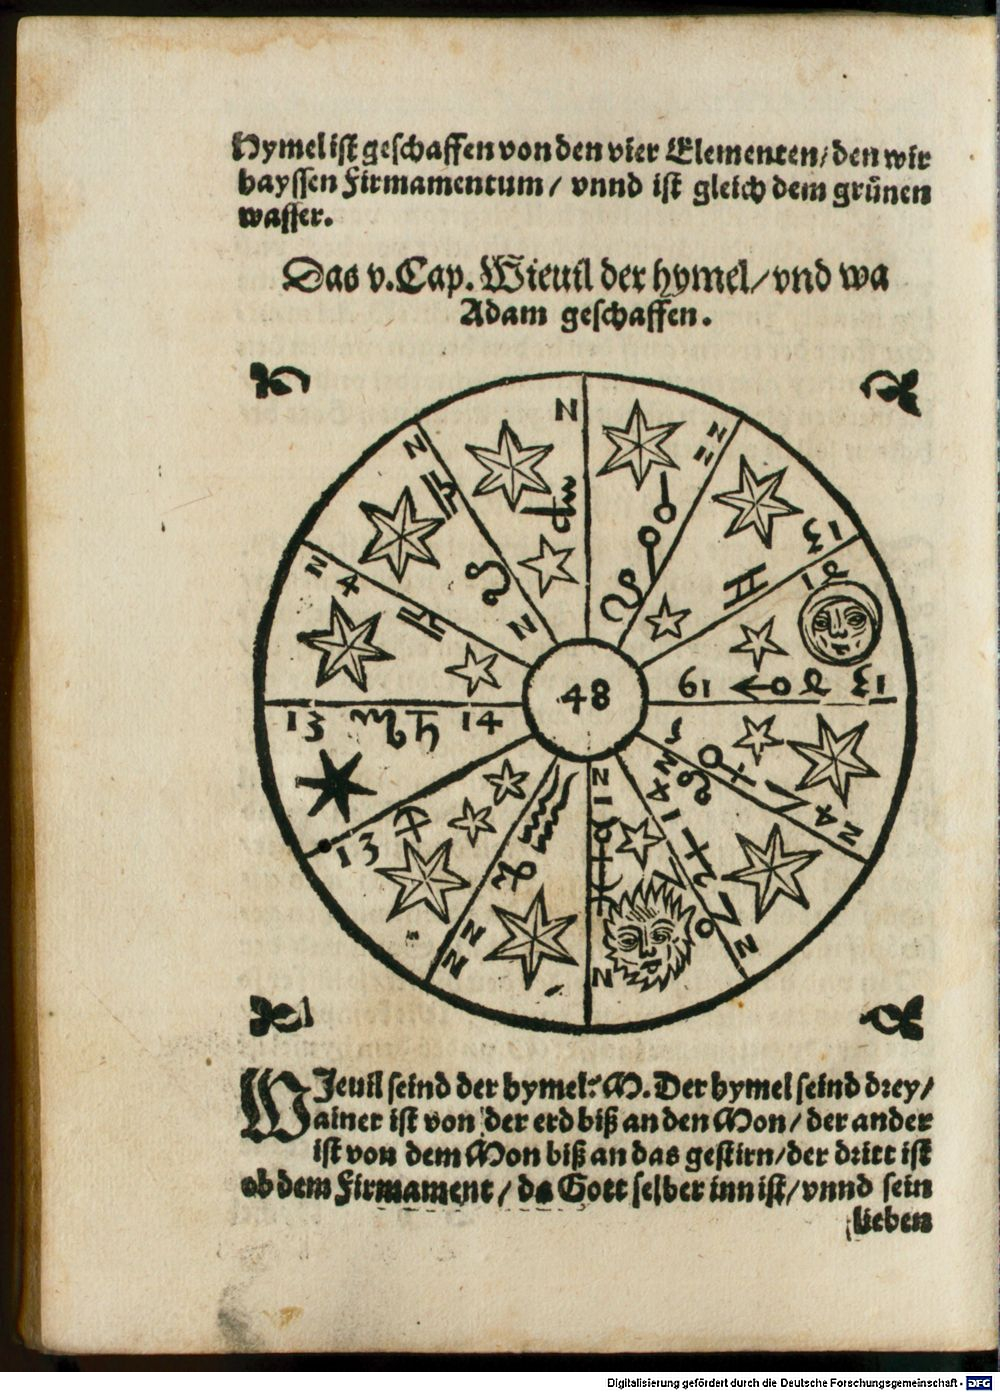 Hymel ist geschaffen von den vier Elementen/ den wir
hayssen Firmamentum/ vnnd ist gleich dem grůnen
wasser.
Das v. Cap. Wieuil der hymel/ vnd wa
Adam geschaffen.
N
N
N 4
N
48
13
14
61
13
13
N
N
N
N 4
WJeuil seind der hymel? M. Der hymel seind drey/
ainer ist von der erd biß an den Mon/ der ander
ist von dem Mon biß an das gestirn/ der dritt ist
ob dem Firmament/ da Gott selber inn ist/ vnnd sein
lieben
Digitalisierung gefördert durch die Deutsche Forschungsgemeinschaft - DFG